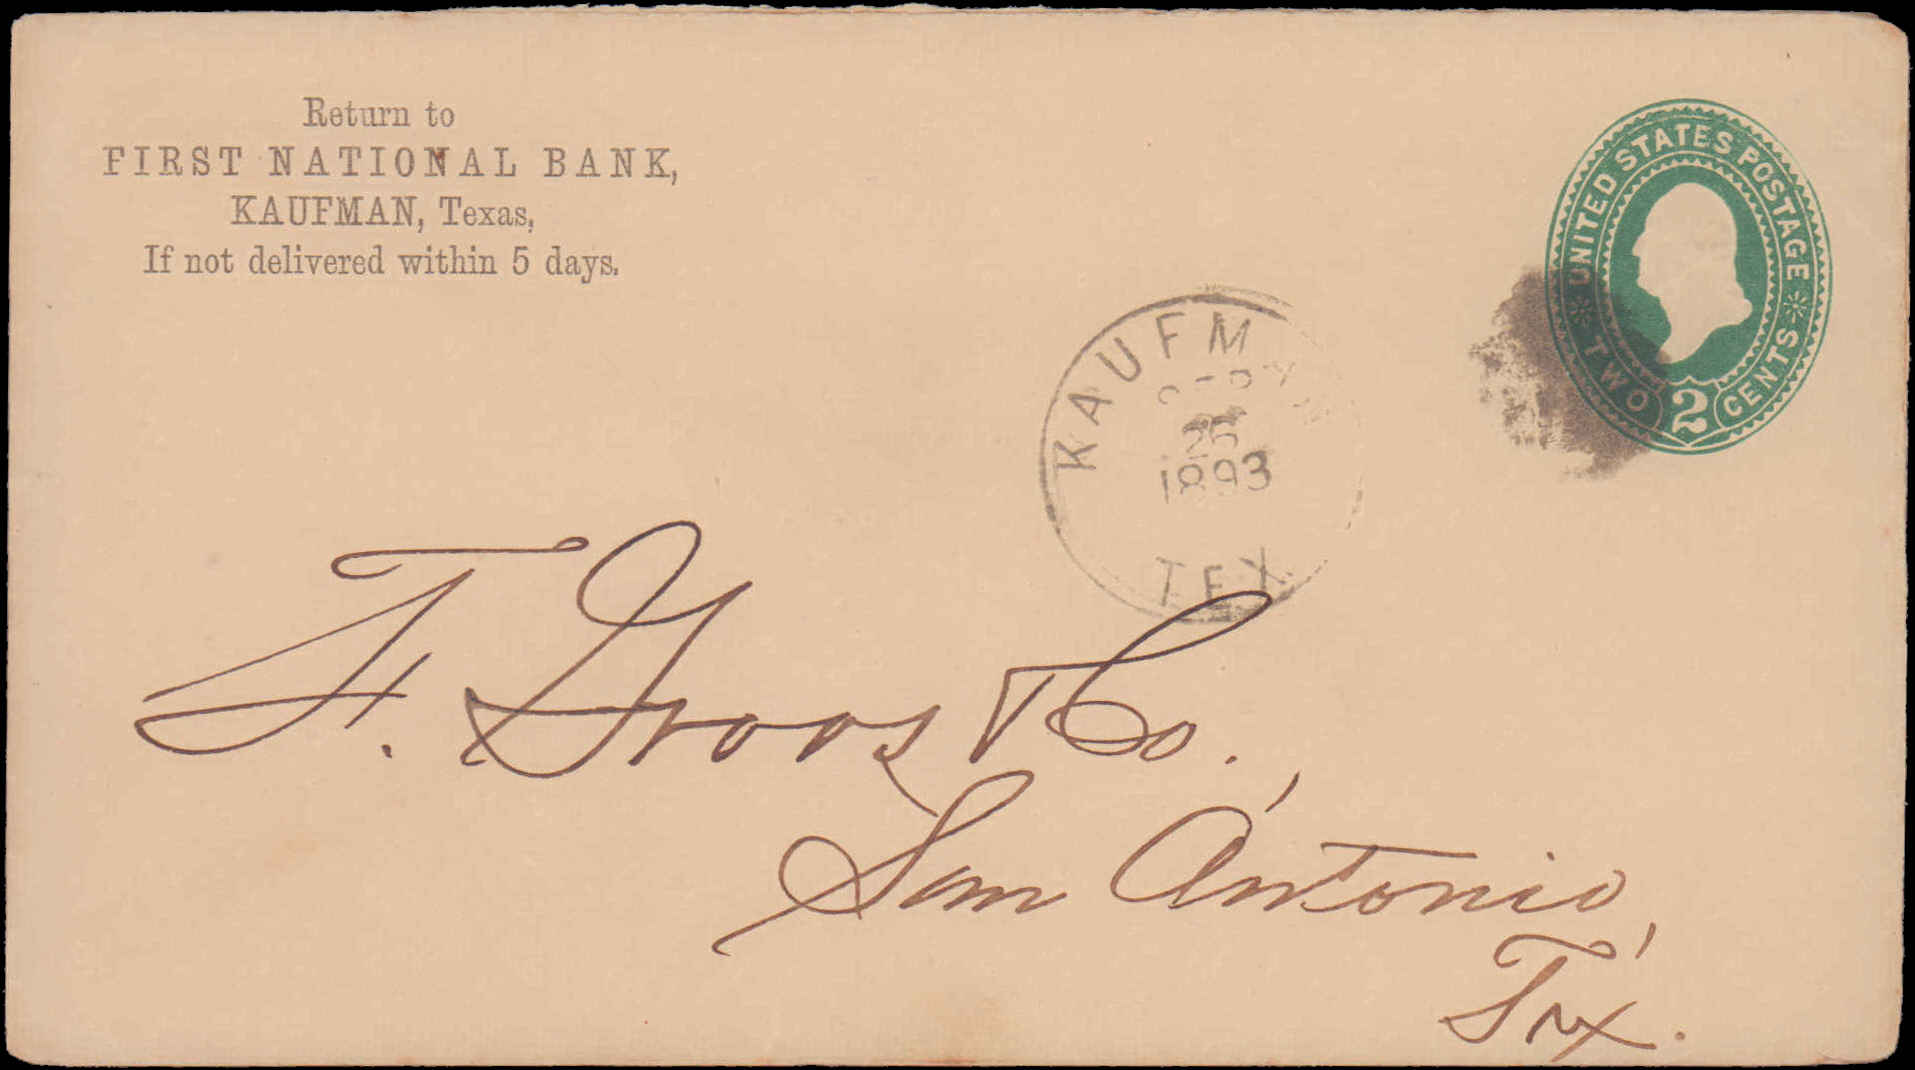 Return to
FIRST NATIONAL BANK,
KAUFMAN, Texas,
If not delivered within 5 days.
UNITED STATES POSTAGE
TWO 2 CENTS
KAUFM
26
1893
TEX
F. Groos & Co.,
San Antonio,
Tex.